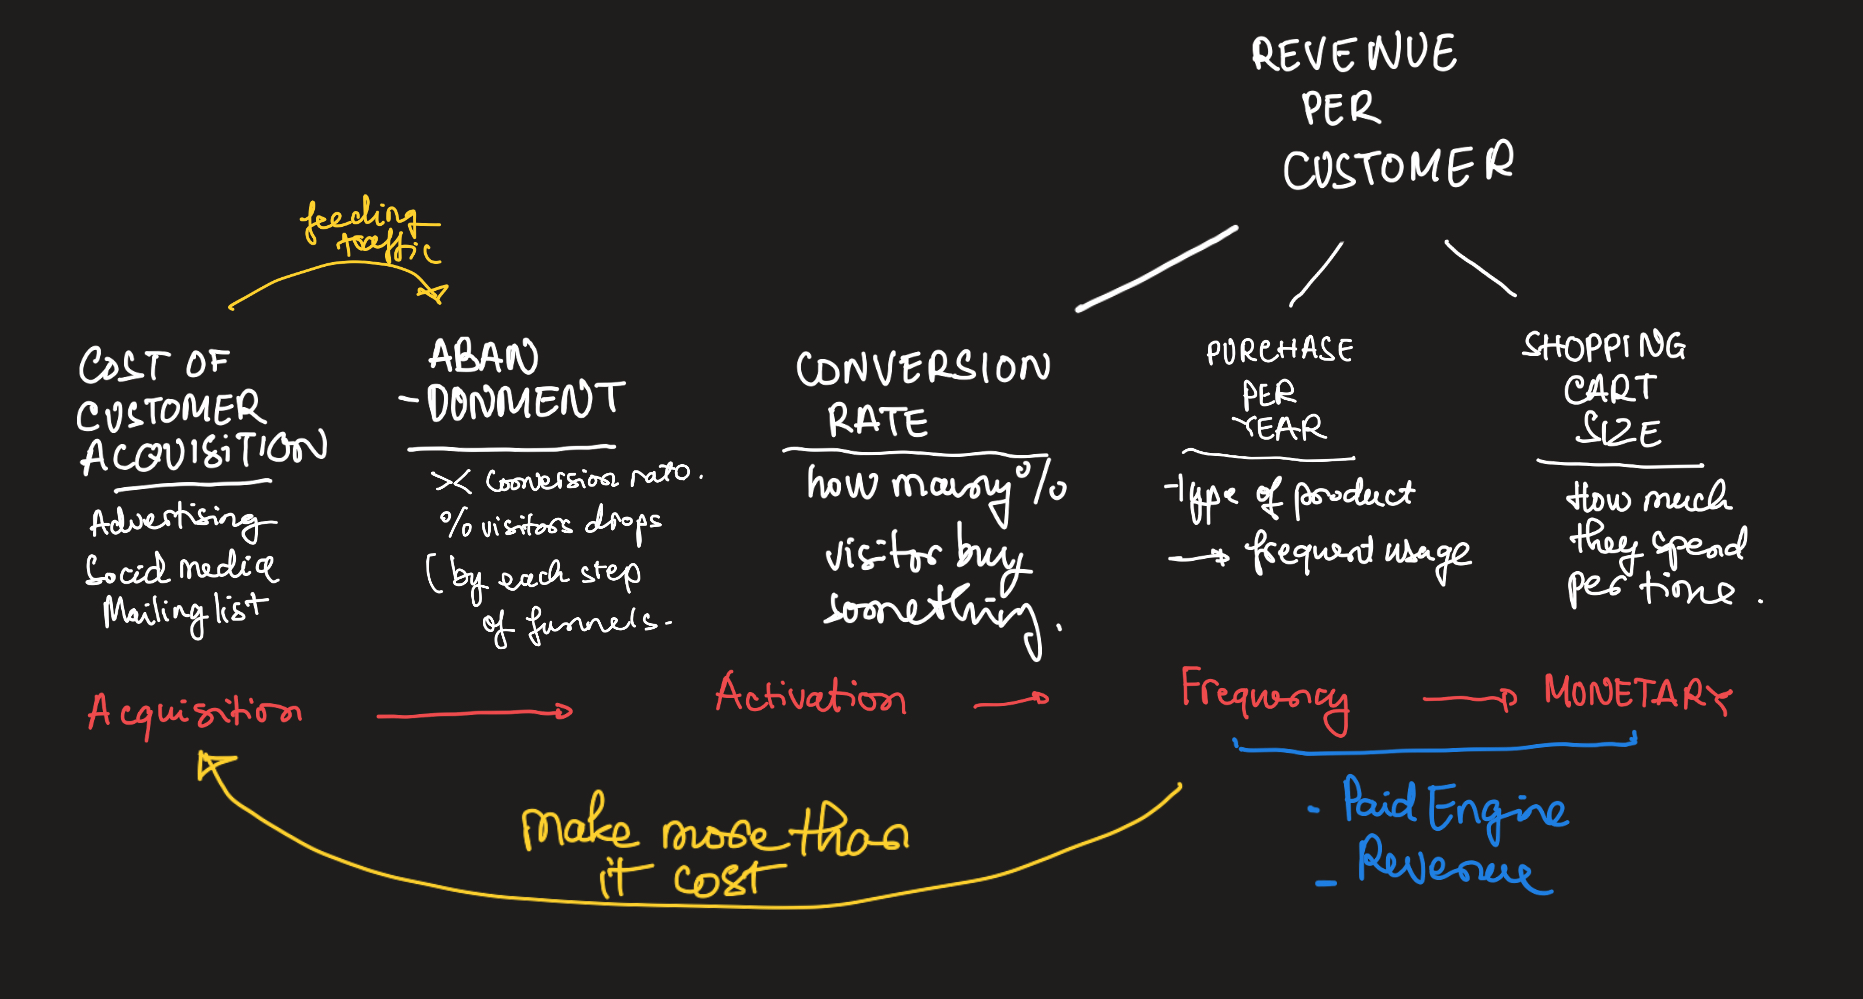 REVENUE
PER
CUSTOMER
feeding
traffic
COST OF
CUSTOMER
ACQUISITION
Advertising
Social media
Mailing list
ABAN
-DONMENT
>< Conversion rate.
% visitors drops
(by each step
of funnels.
CONVERSION
RATE
how many %
visitor buy
something.
PURCHASE
PER
YEAR
-Type of product
→ frequent usage
SHOPPING
CART
SIZE
How much
they spend
per time.
Acquisition → Activation → Frequency → MONETARY
make more than
it cost
- Paid Engine
- Revenue